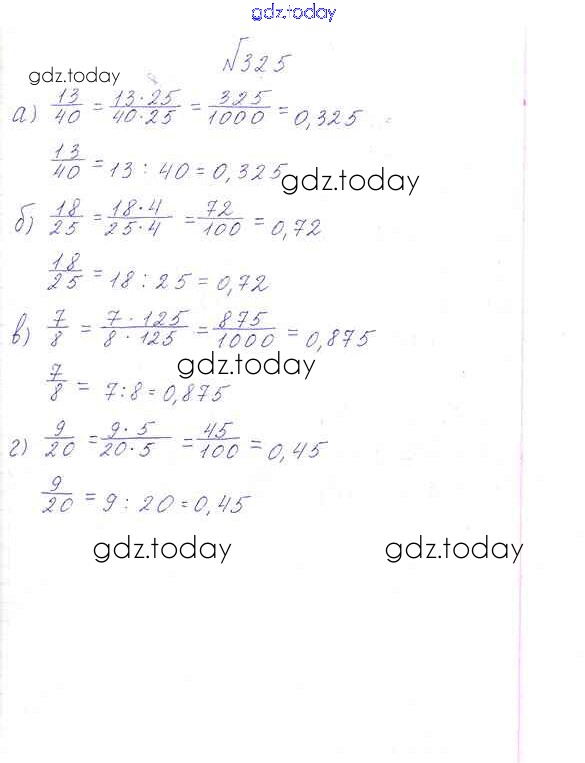 gdz.today
№325
gdz.today
а) 13/40 = 13·25/40·25 = 325/1000 = 0,325
13/40 = 13 : 40 = 0,325
gdz.today
б) 18/25 = 18·4/25·4 = 72/100 = 0,72
18/25 = 18 : 25 = 0,72
в) 7/8 = 7·125/8·125 = 875/1000 = 0,875
gdz.today
7/8 = 7:8 = 0,875
г) 9/20 = 9·5/20·5 = 45/100 = 0,45
9/20 = 9 : 20 = 0,45
gdz.today gdz.today